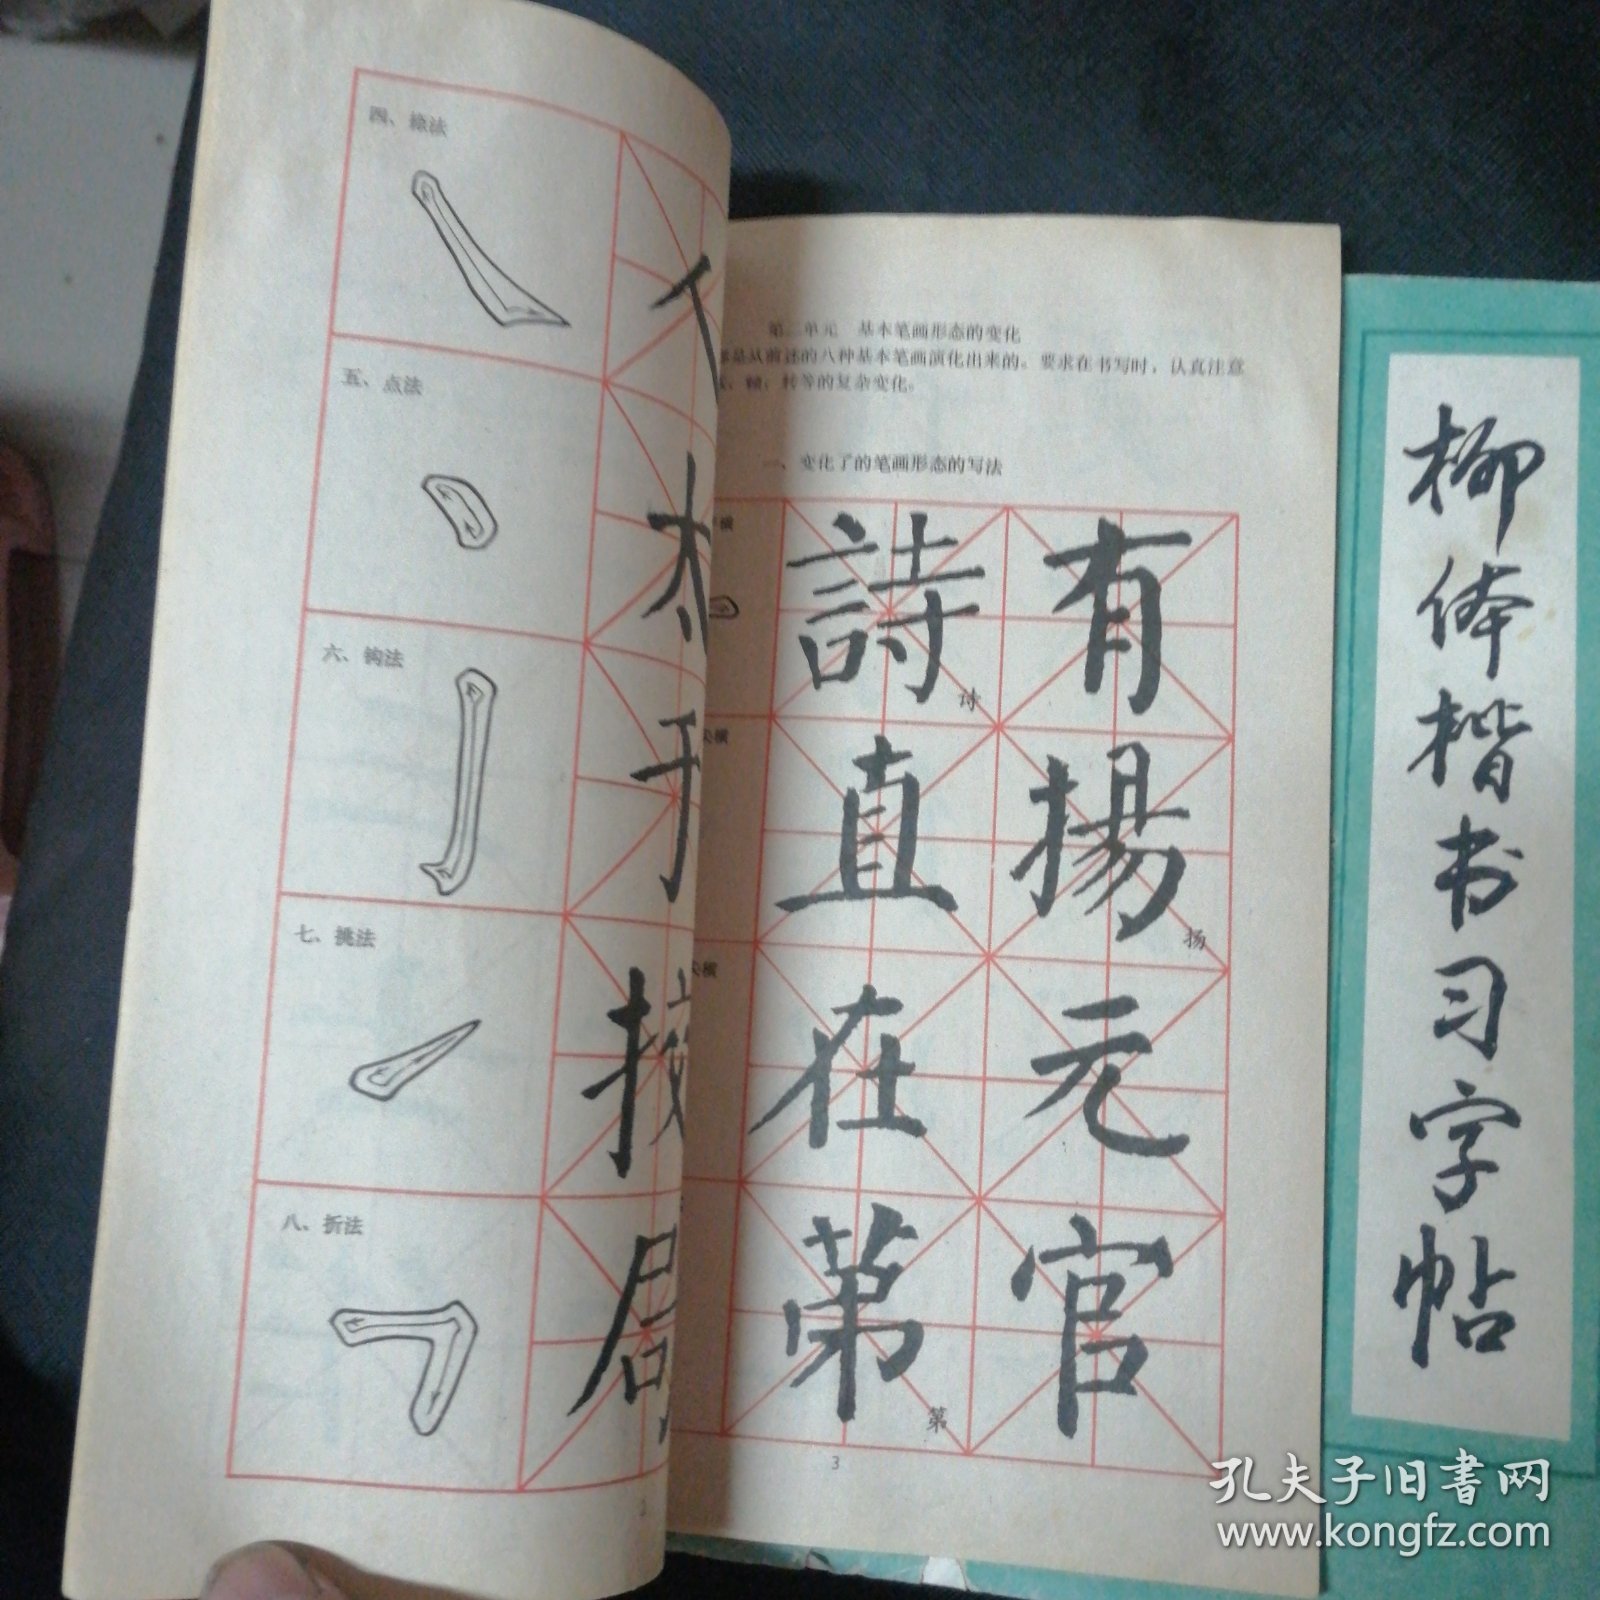 四、捺法
五、点法
六、钩法
七、挑法
八、折法
太
于
按
局
第二单元 基本笔画形态的变化
是从前述的八种基本笔画演化出来的。要求在书写时，认真注意
转等的复杂变化。
一、变化了的笔画形态的写法
横
詩 有
诗
尖横
直 揚
扬
尖横
在 元
苐 官
第
3
柳体楷书习字帖
孔夫子旧書网
www.kongfz.com